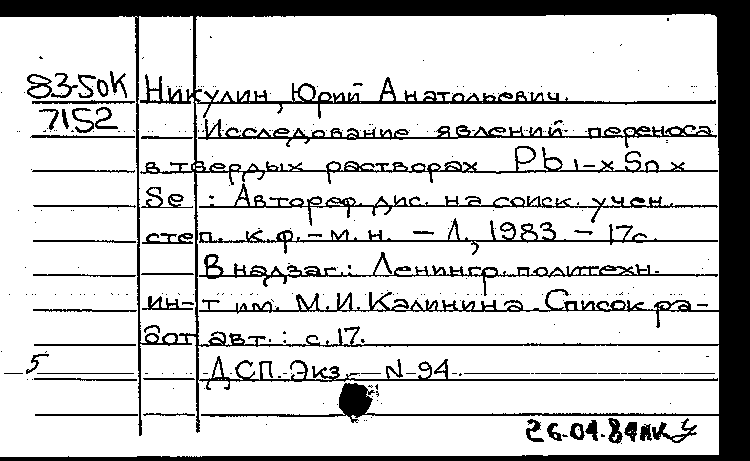 83-50К Никулин, Юрий Анатольевич.
7152 Исследование явлений переноса
в твердых растворах Pb 1-x Sn x
Se : Автореф. дис. на соиск. учен.
степ. к.ф.-м.н. - Л., 1983. - 17с.
В надзаг.: Ленингр. политехн.
ин-т им. М.И.Калинина. Список ра-
бот авт.: с.17.
5 ДСП. Экз. N 94
26.04.84